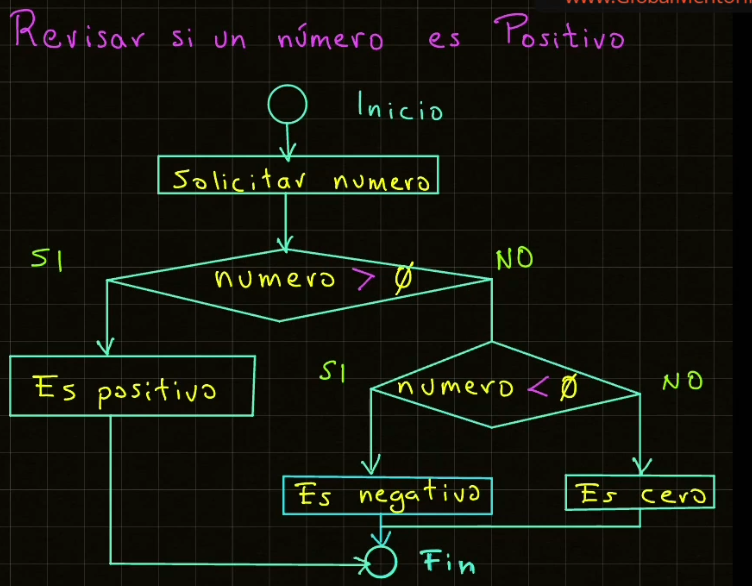 Revisar si un número es Positivo
Inicio
Solicitar numero
SI
numero > 0
NO
Es positivo
SI
numero < 0
NO
Es negativo
Es cero
Fin